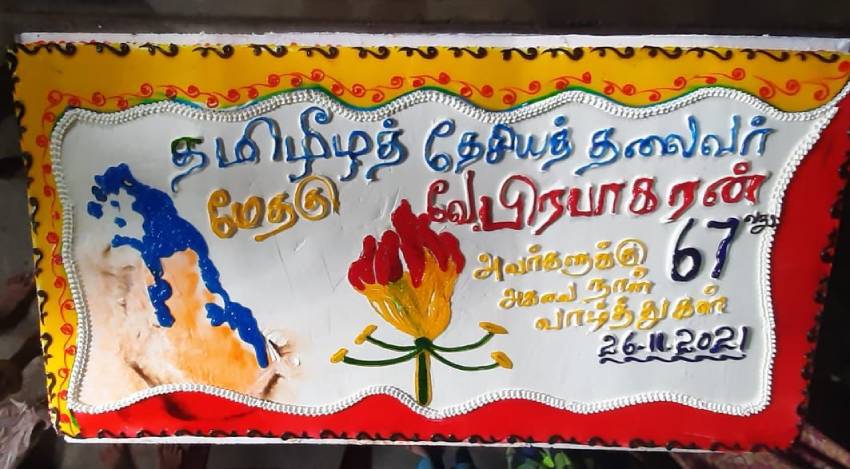 தமிழீழத் தேசியத் தலைவர்
மேதகு வே.பிரபாகரன்
அவர்களுக்கு 67வது
அகவை நாள்
வாழ்த்துகள்
26.11.2021